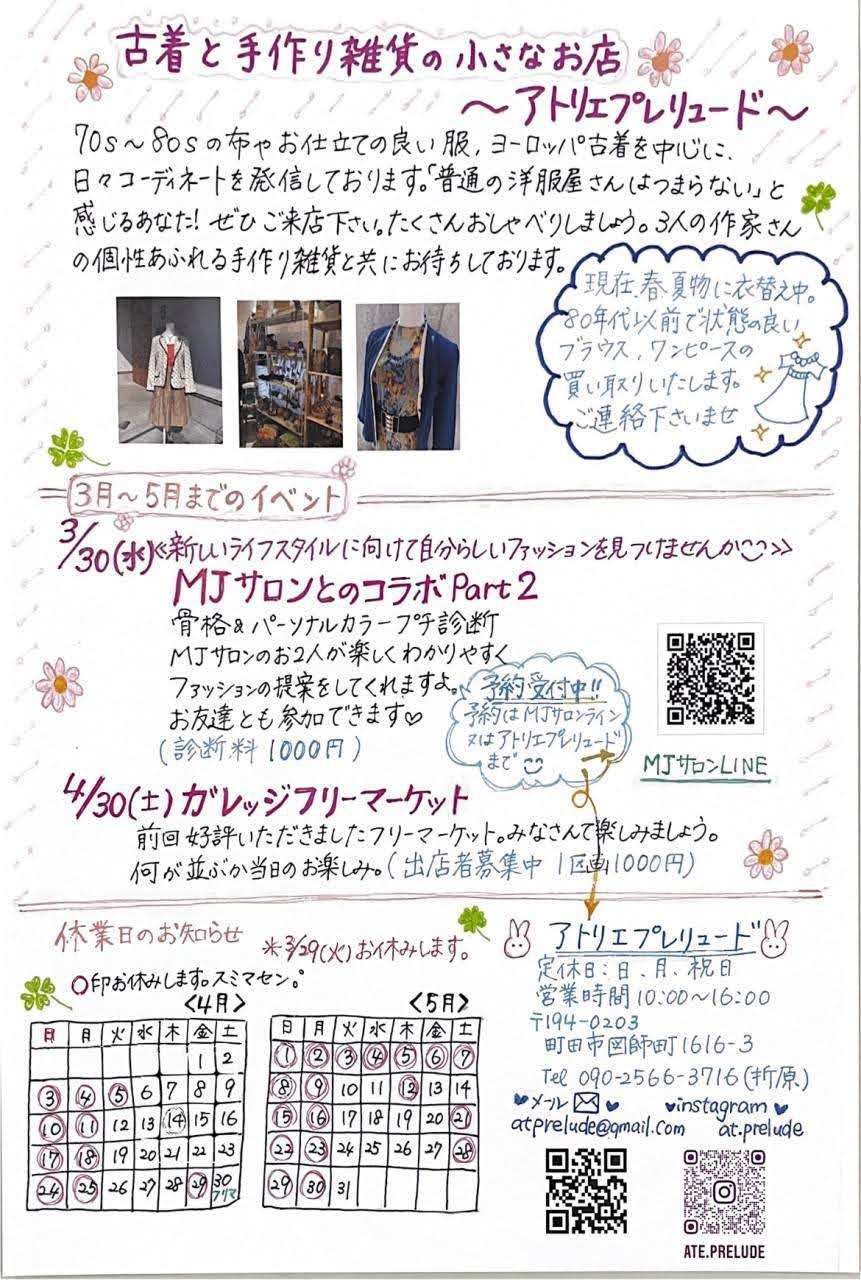 古着と手作り雑貨の小さなお店
～アトリエプレリュード～
70s～80sの布やお仕立ての良い服、ヨーロッパ古着を中心に、
日々コーディネートを発信しております。「普通の洋服屋さんはつまらない」と
感じるあなた！ぜひご来店下さい。たくさんおしゃべりしましょう。3人の作家さん
の個性あふれる手作り雑貨と共にお待ちしております。
現在、春夏物に衣替え中。
80年代以前で状態の良い
ブラウス、ワンピースの
買い取りいたします。
ご連絡下さいませ
3月～5月までのイベント
3/30(水)≪新しいライフスタイルに向けて自分らしいファッションを見つけませんか≫
MJサロンとのコラボPart2
骨格&パーソナルカラープチ診断
MJサロンのお2人が楽しくわかりやすく
ファッションの提案をしてくれますよ。
お友達とも参加できます♡
(診断料1000円)
予約受付中!!
予約はMJサロンライン
又はアトリエプレリュード
まで
MJサロンLINE
4/30(土)ガレッジフリーマーケット
前回好評いただきましたフリーマーケット。みなさんで楽しみましょう。
何が並ぶか当日のお楽しみ。(出店者募集中 1区画1000円)
休業日のお知らせ
※3/29(火)お休みします。
○印お休みします。スミマセン。
<4月>
日 月 火 水 木 金 土
1 2
3 4 5 6 7 8 9
10 11 12 13 14 15 16
17 18 19 20 21 22 23
24 25 26 27 28 29 30
フリマ
<5月>
日 月 火 水 木 金 土
1 2 3 4 5 6 7
8 9 10 11 12 13 14
15 16 17 18 19 20 21
22 23 24 25 26 27 28
29 30 31
アトリエプレリュード
定休日:日、月、祝日
営業時間10:00～16:00
〒194-0203
町田市図師町1616-3
Tel 090-2566-3716(折原)
♥メール♥
atprelude@gmail.com
♥instagram♥
at.prelude
ATE.PRELUDE